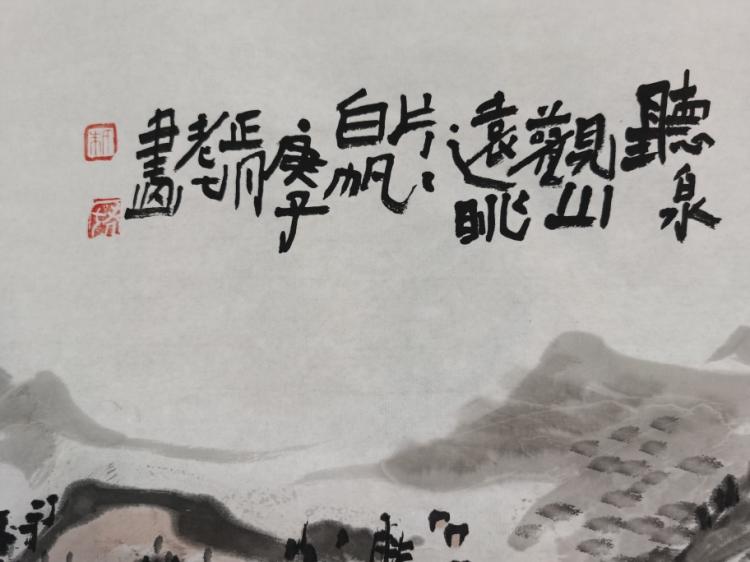 聽泉
觀山
遠眺
片々
白帆
庚子
正月
老七
畫